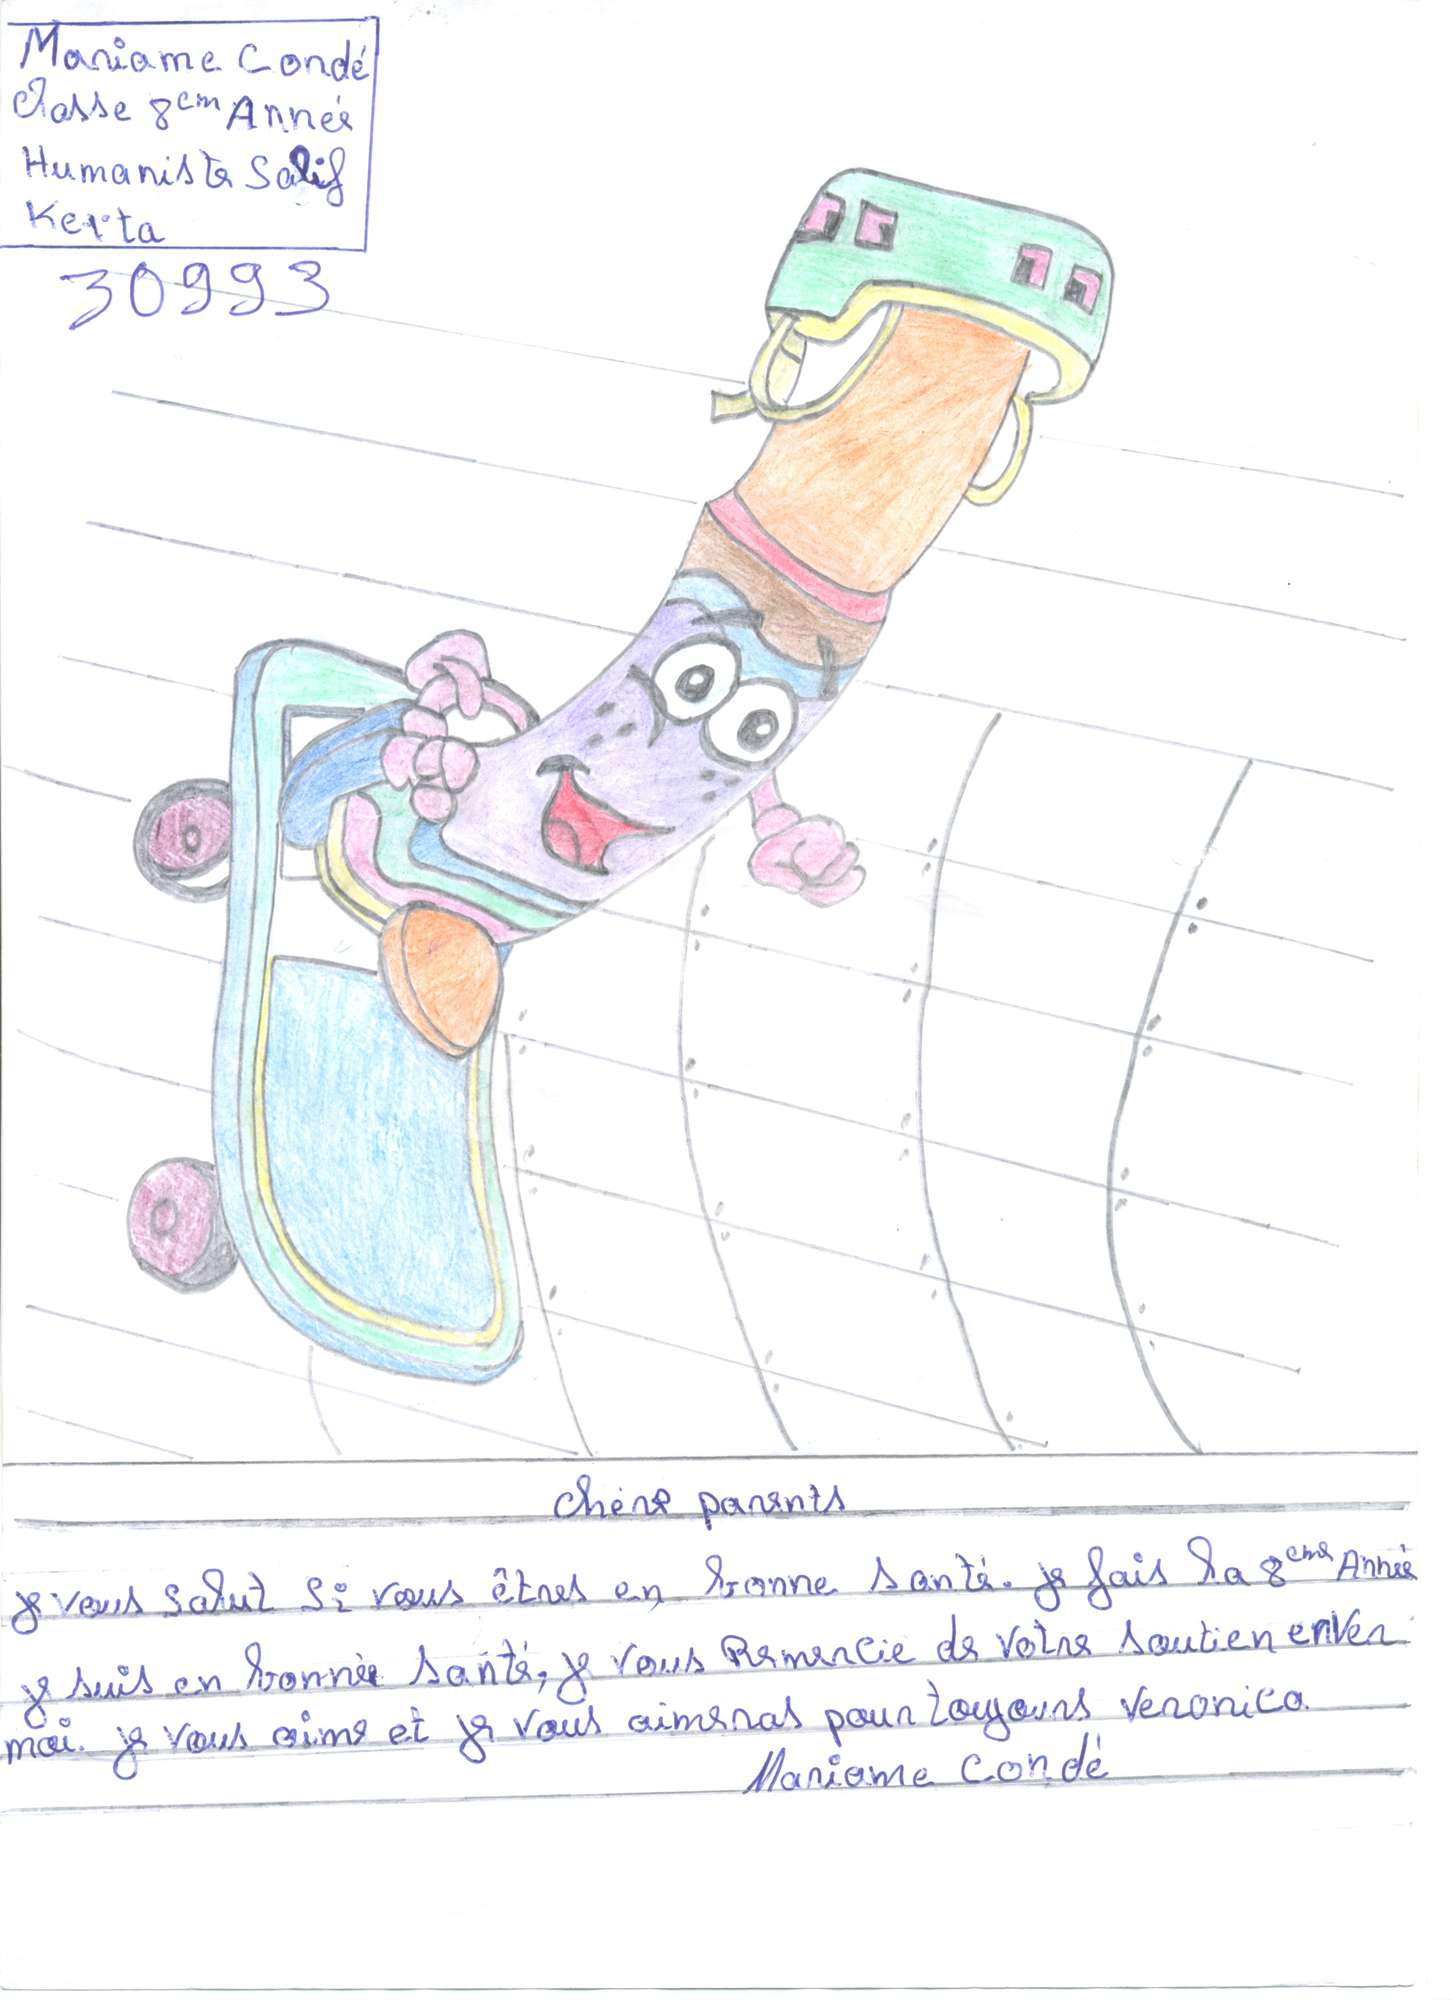 Mariame Condé
Classe 8em Année
Humaniste Salif
Keita
30993
chère parents
je vous salut si vous êtres en bonne santé. je fais la 8eme Année
je suis en bonnée santé, je vous Remercie de votre soutien enver
moi. je vous aime et je vous aimeras pour toujours Veronica.
Mariame Condé